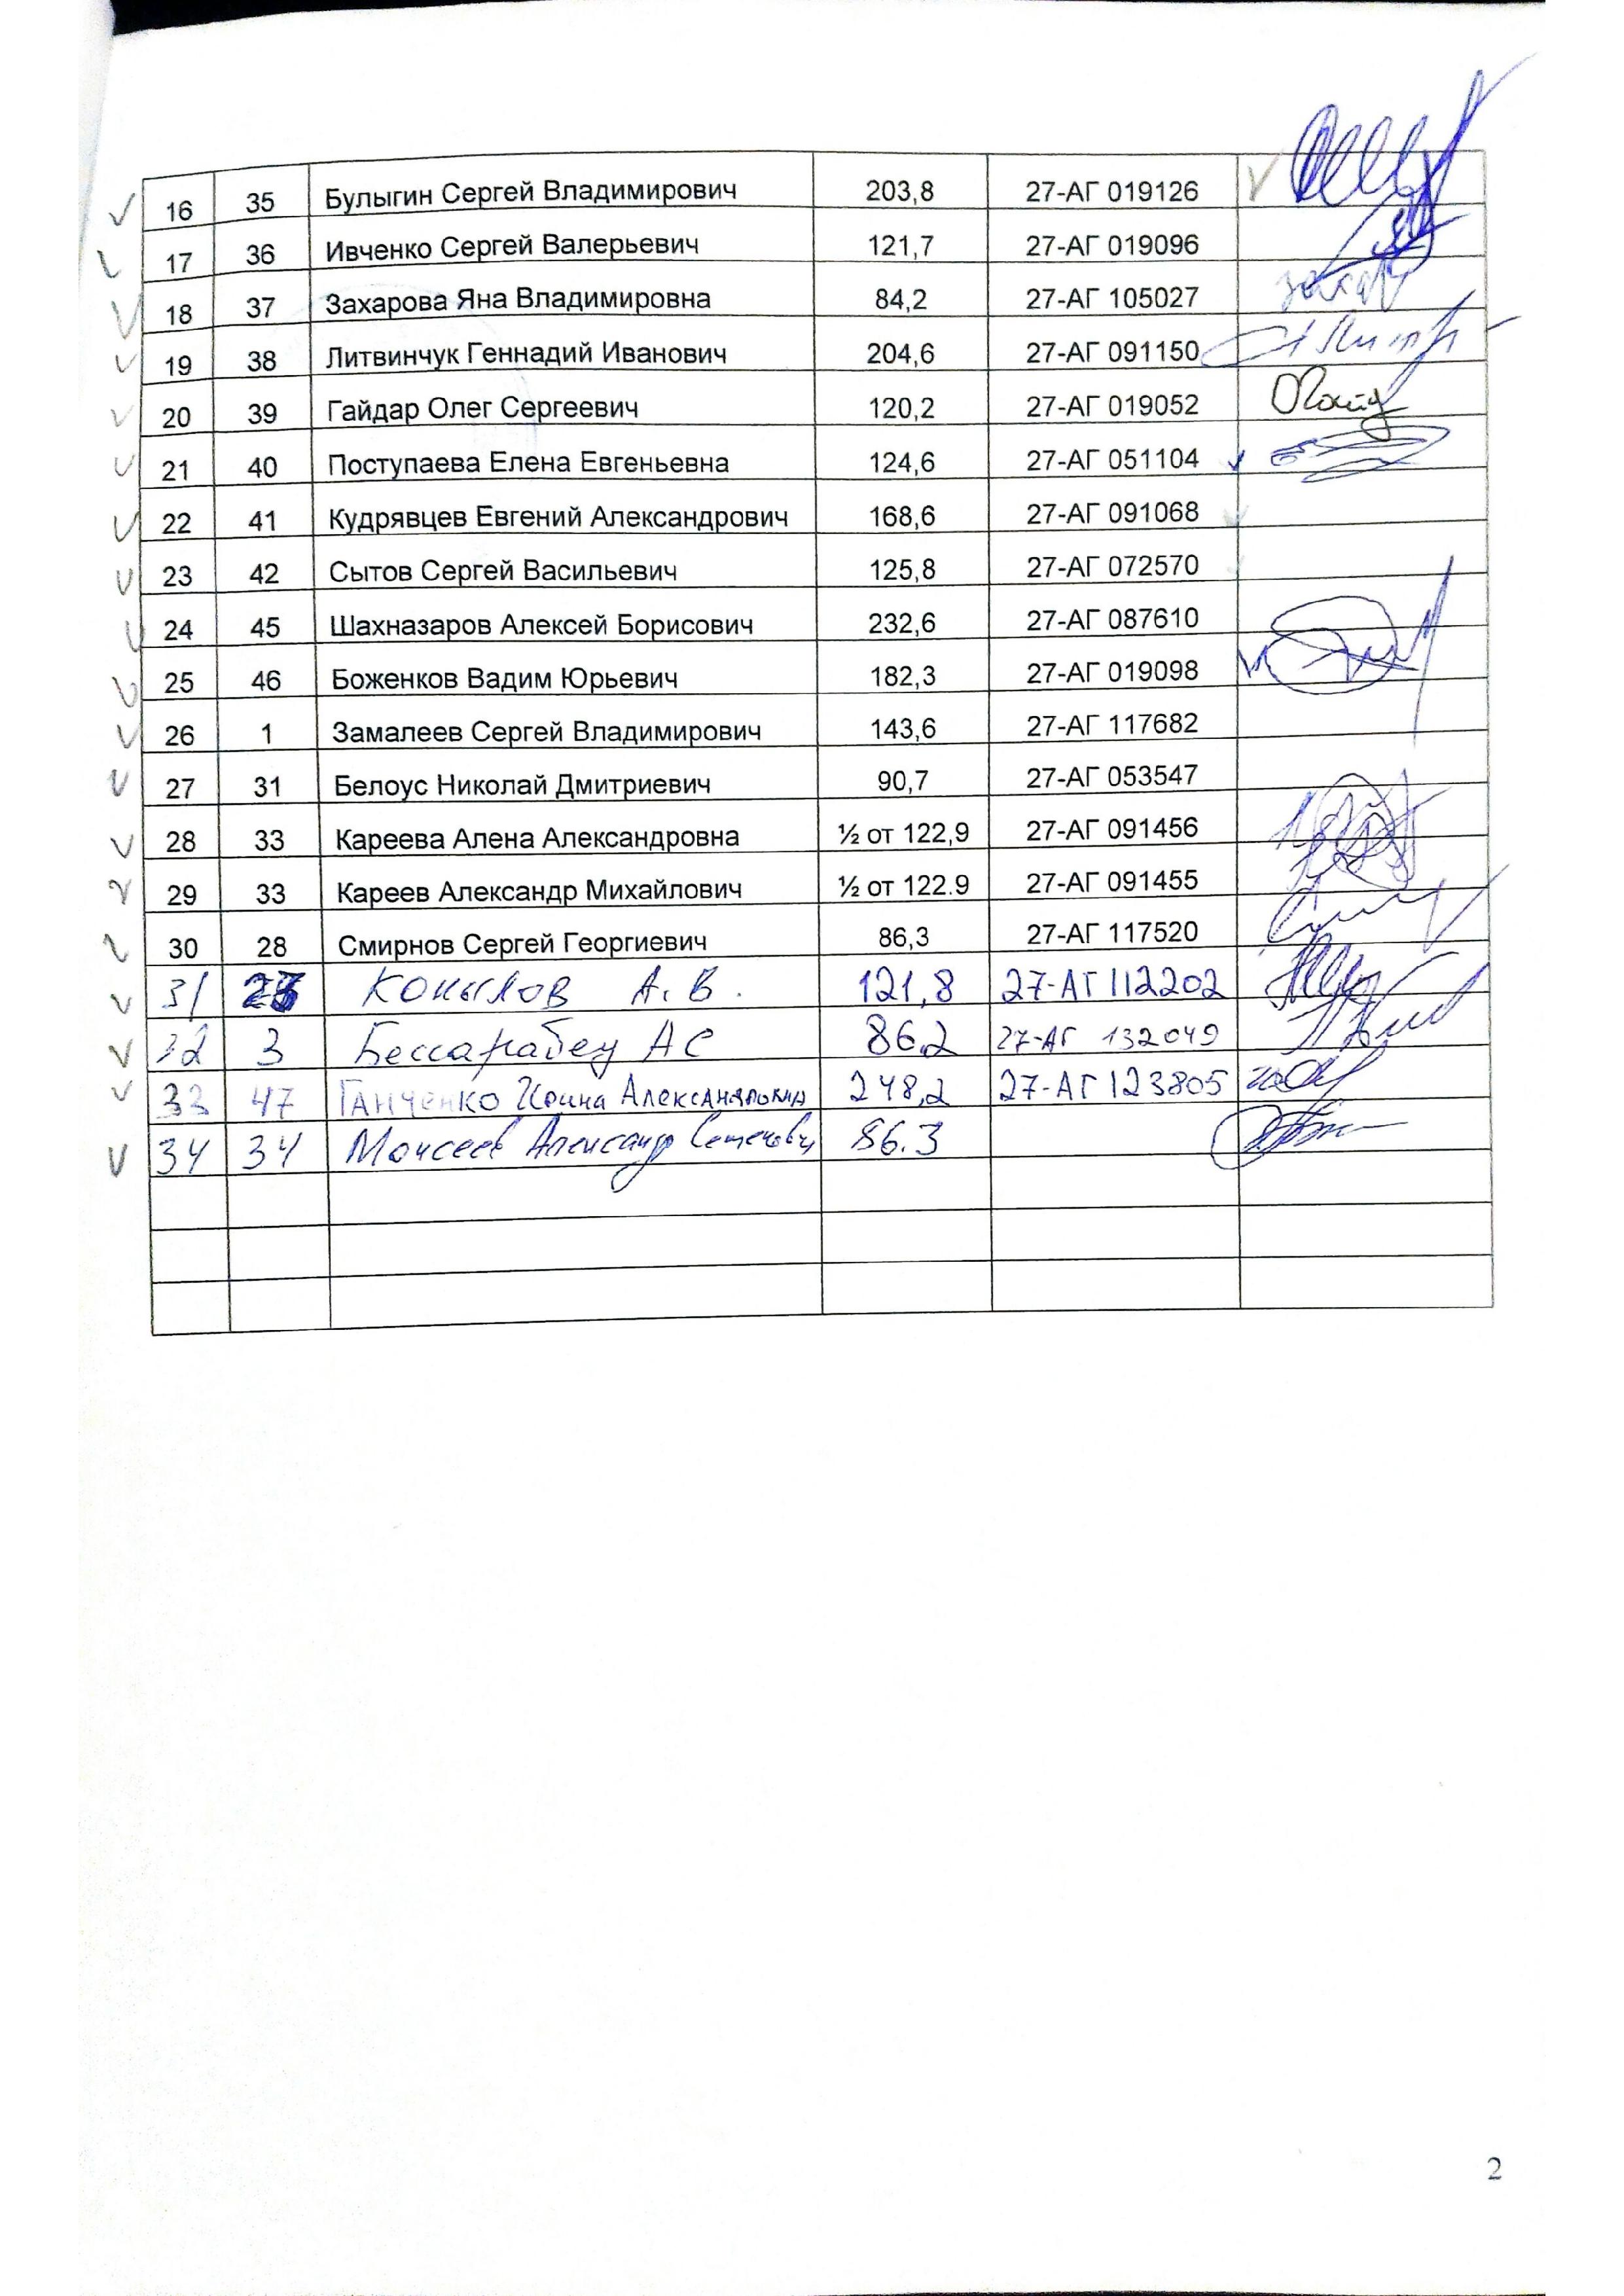 16 35 Булыгин Сергей Владимирович 203,8 27-АГ 019126
17 36 Ивченко Сергей Валерьевич 121,7 27-АГ 019096
18 37 Захарова Яна Владимировна 84,2 27-АГ 105027
19 38 Литвинчук Геннадий Иванович 204,6 27-АГ 091150
20 39 Гайдар Олег Сергеевич 120,2 27-АГ 019052
21 40 Поступаева Елена Евгеньевна 124,6 27-АГ 051104
22 41 Кудрявцев Евгений Александрович 168,6 27-АГ 091068
23 42 Сытов Сергей Васильевич 125,8 27-АГ 072570
24 45 Шахназаров Алексей Борисович 232,6 27-АГ 087610
25 46 Боженков Вадим Юрьевич 182,3 27-АГ 019098
26 1 Замалеев Сергей Владимирович 143,6 27-АГ 117682
27 31 Белоус Николай Дмитриевич 90,7 27-АГ 053547
28 33 Кареева Алена Александровна ½ от 122,9 27-АГ 091456
29 33 Кареев Александр Михайлович ½ от 122.9 27-АГ 091455
30 28 Смирнов Сергей Георгиевич 86,3 27-АГ 117520
31 Копылов А. В. 121,8 27-АГ 112202
32 3 Бессарабец АС 86,2 27-АГ 132049
33 47 Ганченко Ирина Александровна 248,2 27-АГ 123805
34 34 Моисеев Александр 86.3
2